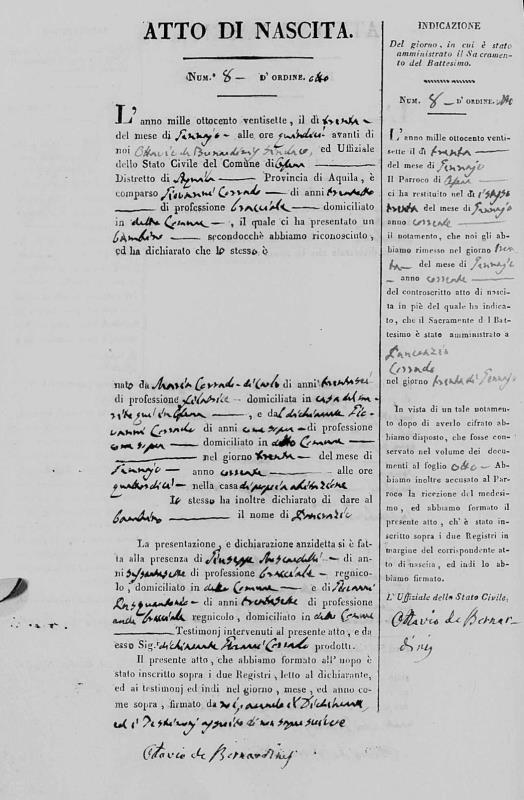 ATTO DI NASCITA.
NUM.º 8 — D' ORDINE. otto
L'anno mille ottocento ventisette, il dì trenta —
del mese di Gennajo — alle ore quindici avanti di
noi Ottavio de Bernardinis Sindaco, ed Uffiziale
dello Stato Civile del Comune di
Distretto di Aquila — Provincia di Aquila, è
comparso Giovanni Corrado — di anni trentotto
di professione bracciale — domiciliato
in detta Comune —, il quale ci ha presentato un
bambino — secondocchè abbiamo riconosciuto,
ed ha dichiarato che lo stesso è
nato da Maria Corrado di Carlo di anni trentasei
di professione filatrice — domiciliata in casa del ma-
rito qui in —, e dal dichiarante Gio-
vanni Corrado di anni come sopra — di professione
come sopra — domiciliato in detto Comune —
— nel giorno trenta — del mese di
Gennajo — anno corrente — alle ore
quattordici — nella casa di propria abitazione
Lo stesso ha inoltre dichiarato di dare al
bambino — il nome di Pancrazio
La presentazione, e dichiarazione anzidetta si è fat-
ta alla presenza di Giuseppe — di an-
ni di professione bracciale — regnico-
lo, domiciliato in detto Comune — e di Giovanni
— di anni trentasette di professione
anche bracciale regnicolo, domiciliato in detto Comune
— Testimonj intervenuti al presente atto, e da
esso Sig.r dichiarante Giovanni Corrado prodotti.
Il presente atto, che abbiamo formato all' uopo è
stato inscritto sopra i due Registri, letto al dichiarante,
ed ai testimonj ed indi nel giorno, mese, ed anno co-
me sopra, firmato da noi, avendo il Dichiarante,
ed i Testimonj asserito di non saper scrivere
Ottavio de Bernardinis
INDICAZIONE
Del giorno, in cui è stato
amministrato il Sacramen-
to del Battesimo.
NUM. 8 — D' ORDINE. otto
L'anno mille ottocento venti-
sette il dì trenta —
del mese di Gennajo
Il Parroco di
ci ha restituito nel dì istesso
trenta del mese di Gennajo
anno corrente —
il notamento, che noi gli ab-
biamo rimesso nel giorno tren-
ta — del mese di Gennajo
— anno corrente —
del controscritto atto di nasci-
ta in piè del quale ha indica-
to, che il Sacramento del Bat-
tesimo è stato amministrato a
Pancrazio
Corrado
nel giorno trenta di Gennajo
In vista di un tale notamento
dopo di averlo cifrato ab-
biamo disposto, che fosse con-
servato nel volume dei do-
cumenti al foglio otto — Ab-
biamo inoltre accusato al Par-
roco la ricezione del medesi-
mo, ed abbiamo formato il
presente atto, ch' è stato in-
scritto sopra i due Registri in
margine del corrispondente at-
to di nascita, ed indi lo ab-
biamo firmato.
L' Uffiziale dello Stato Civile,
Ottavio de Bernar-
dinis